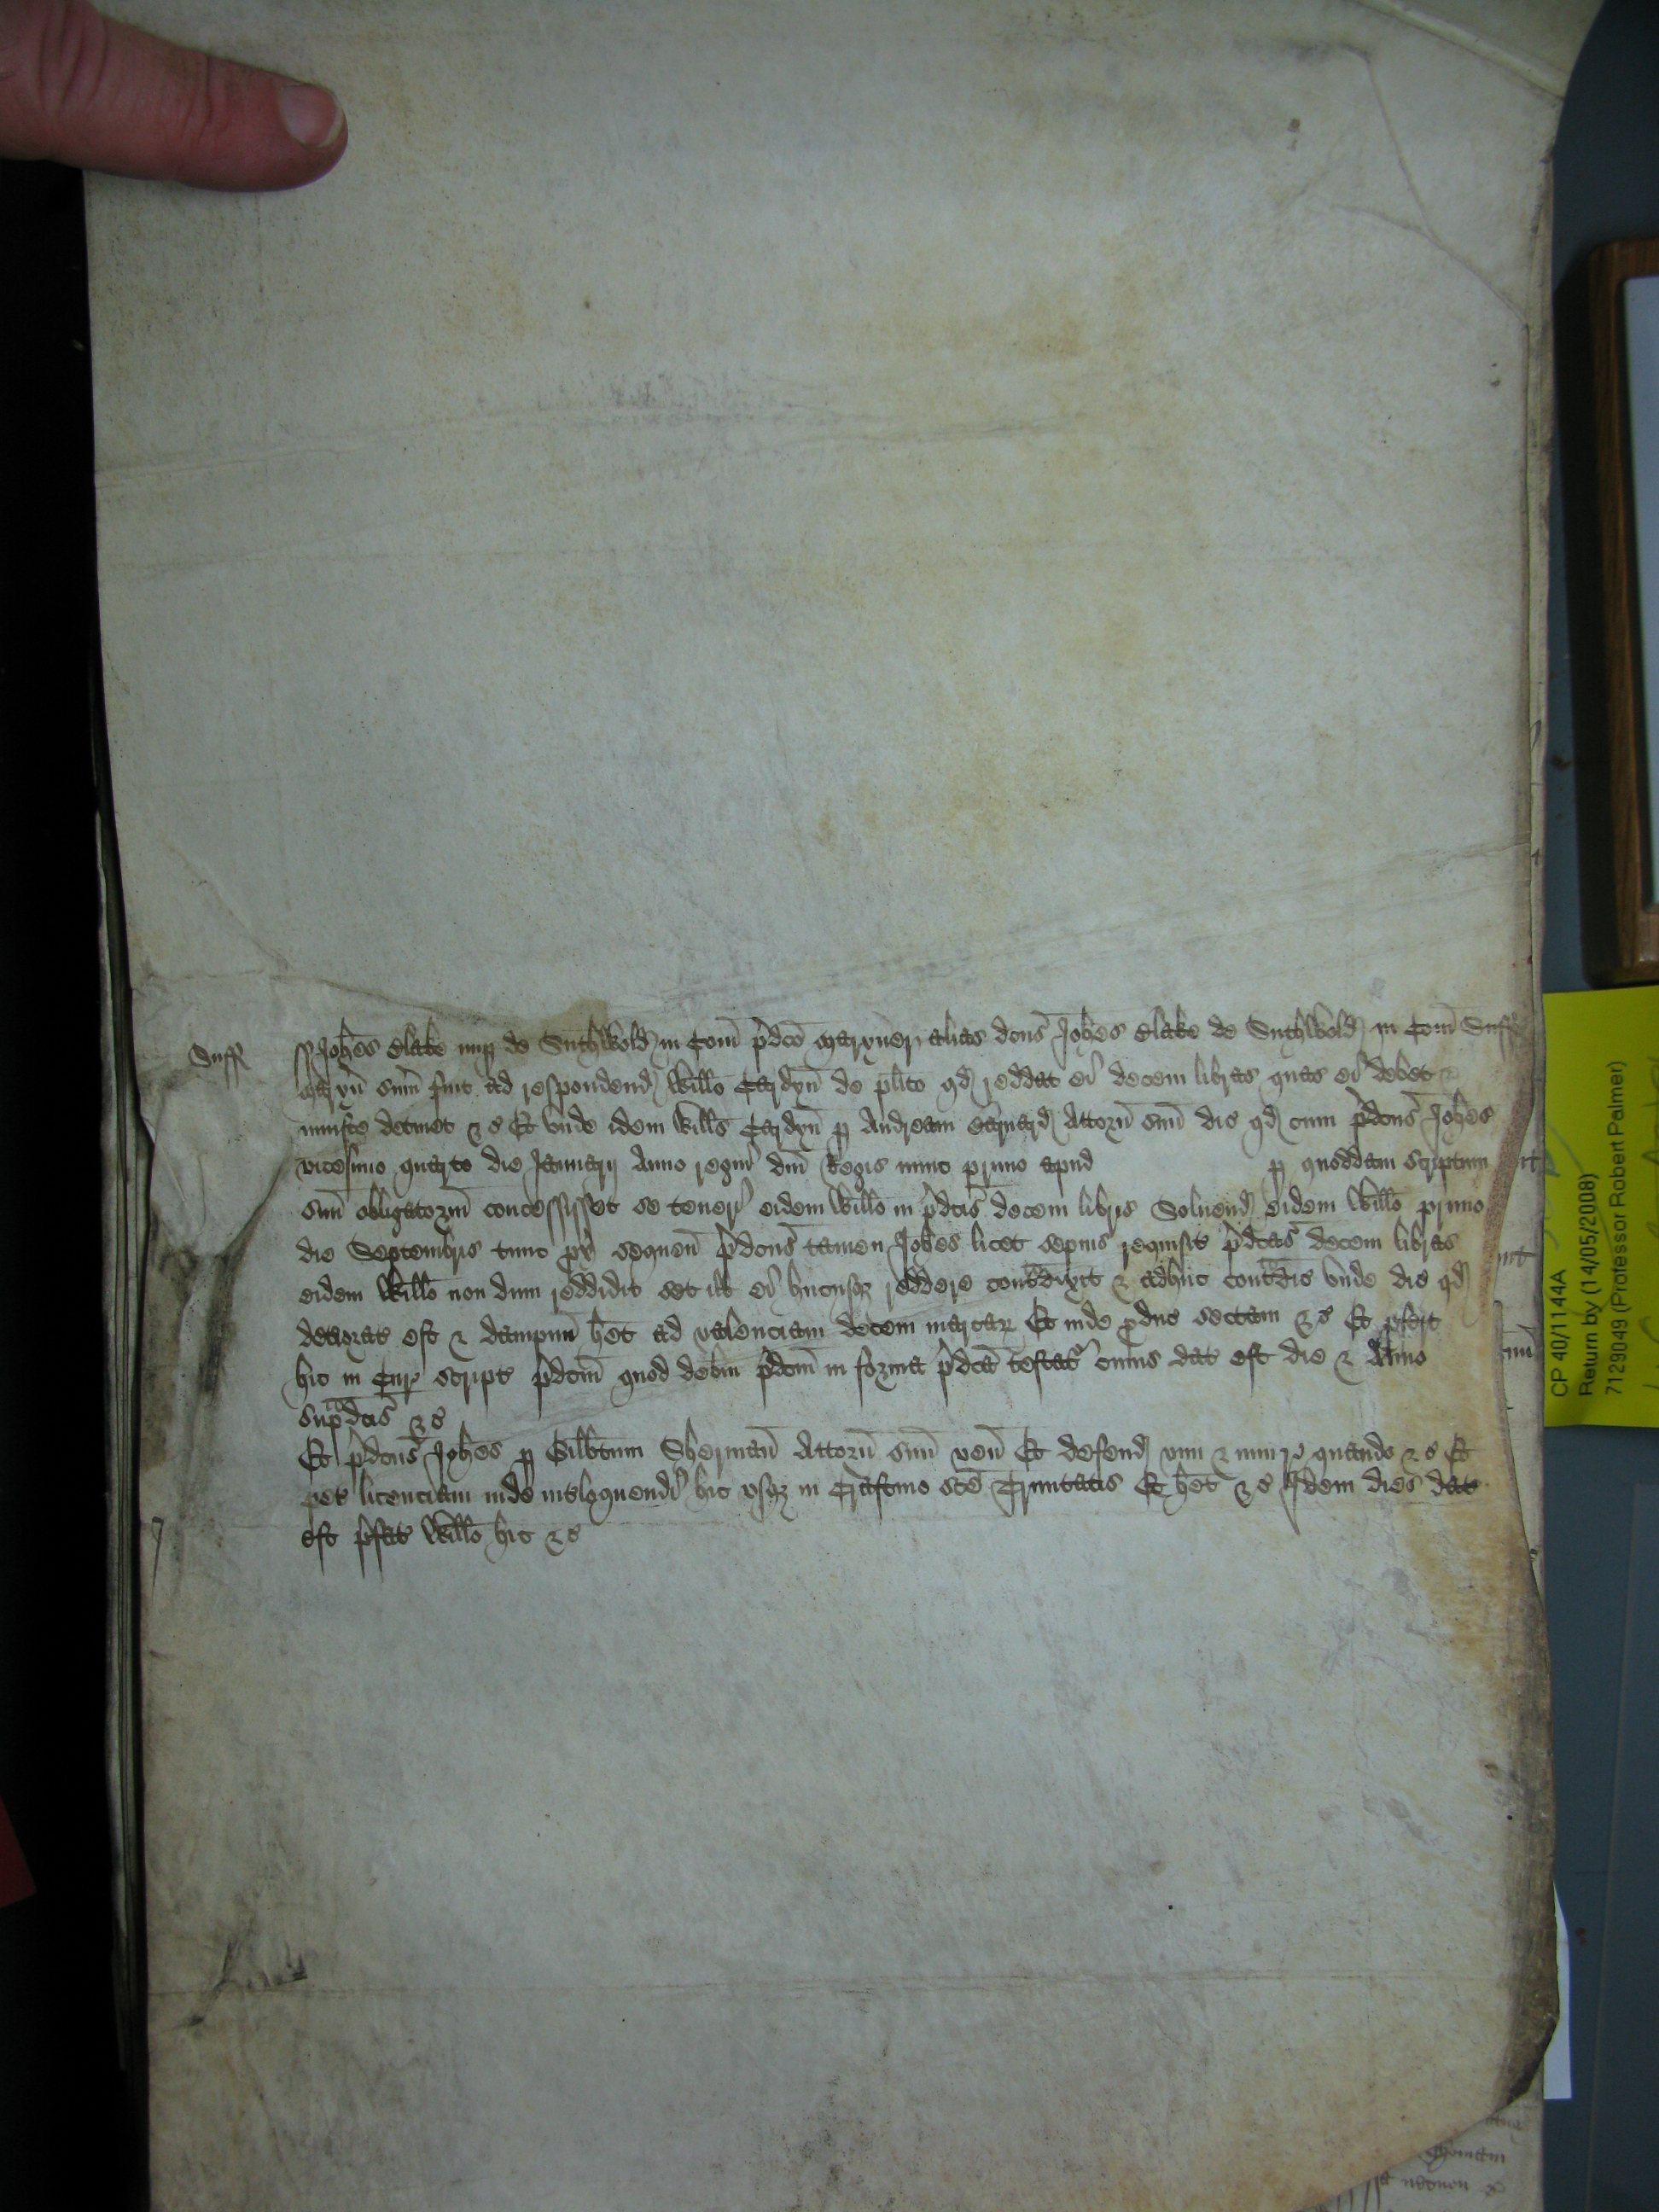 Suff ss Joh̄es Blake nup de Suthwold in Com̄ p̄dc̄o maryner alias dc̄us Joh̄es Blake de Suthwold in Com̄ Suff
maryn̄ sum̄ fuit ad respondend Will̄o Cardyn̄ de pl̄ito qd reddat ei decem libras quas ei debet &
iniuste detinet &c Et vnde idem Will̄s Cardyn̄ p Andream attorn̄ suū dic qd cum p̄dc̄us Joh̄es
vicesimo quarto die Januarij Anno regni dn̄i Regis nunc primo apud p quoddam scriptum
suū obligatoriū concessisset se teneri eidem Will̄o in p̄dc̄is decem libris Soluend eidem Will̄o primo
die Septembris tunc px̄ sequen̄ p̄dc̄us tamen Joh̄es licet sepius requisit p̄dc̄as decem libras
eidem Will̄o non dum reddidit set ill ei hucusq reddere cont̄dixit & adhuc cont̄dic vnde dic qd
deteriorat est & dampnū h̄et ad valenciam decem marcar Et inde pduc sectam &c Et pfert
hic in Cur script p̄dc̄m quod debm p̄dc̄m in forma p̄dc̄a testat cuius dat est die & Anno
sup̄dc̄is &c
Et p̄dc̄us Joh̄es p Gilb̄tum Sherman̄ Attorn̄ suū ven̄ Et defend vim & iniur quando &c Et
pet licenciam inde int̄loquendi hic vsq in Crastino sc̄e Trinitatis Et h̄et &c Idem dies dat
est p̄fat Will̄o hic &c
CP 40/1144A
Return by (14/05/2008)
7129049 (Professor Robert Palmer)